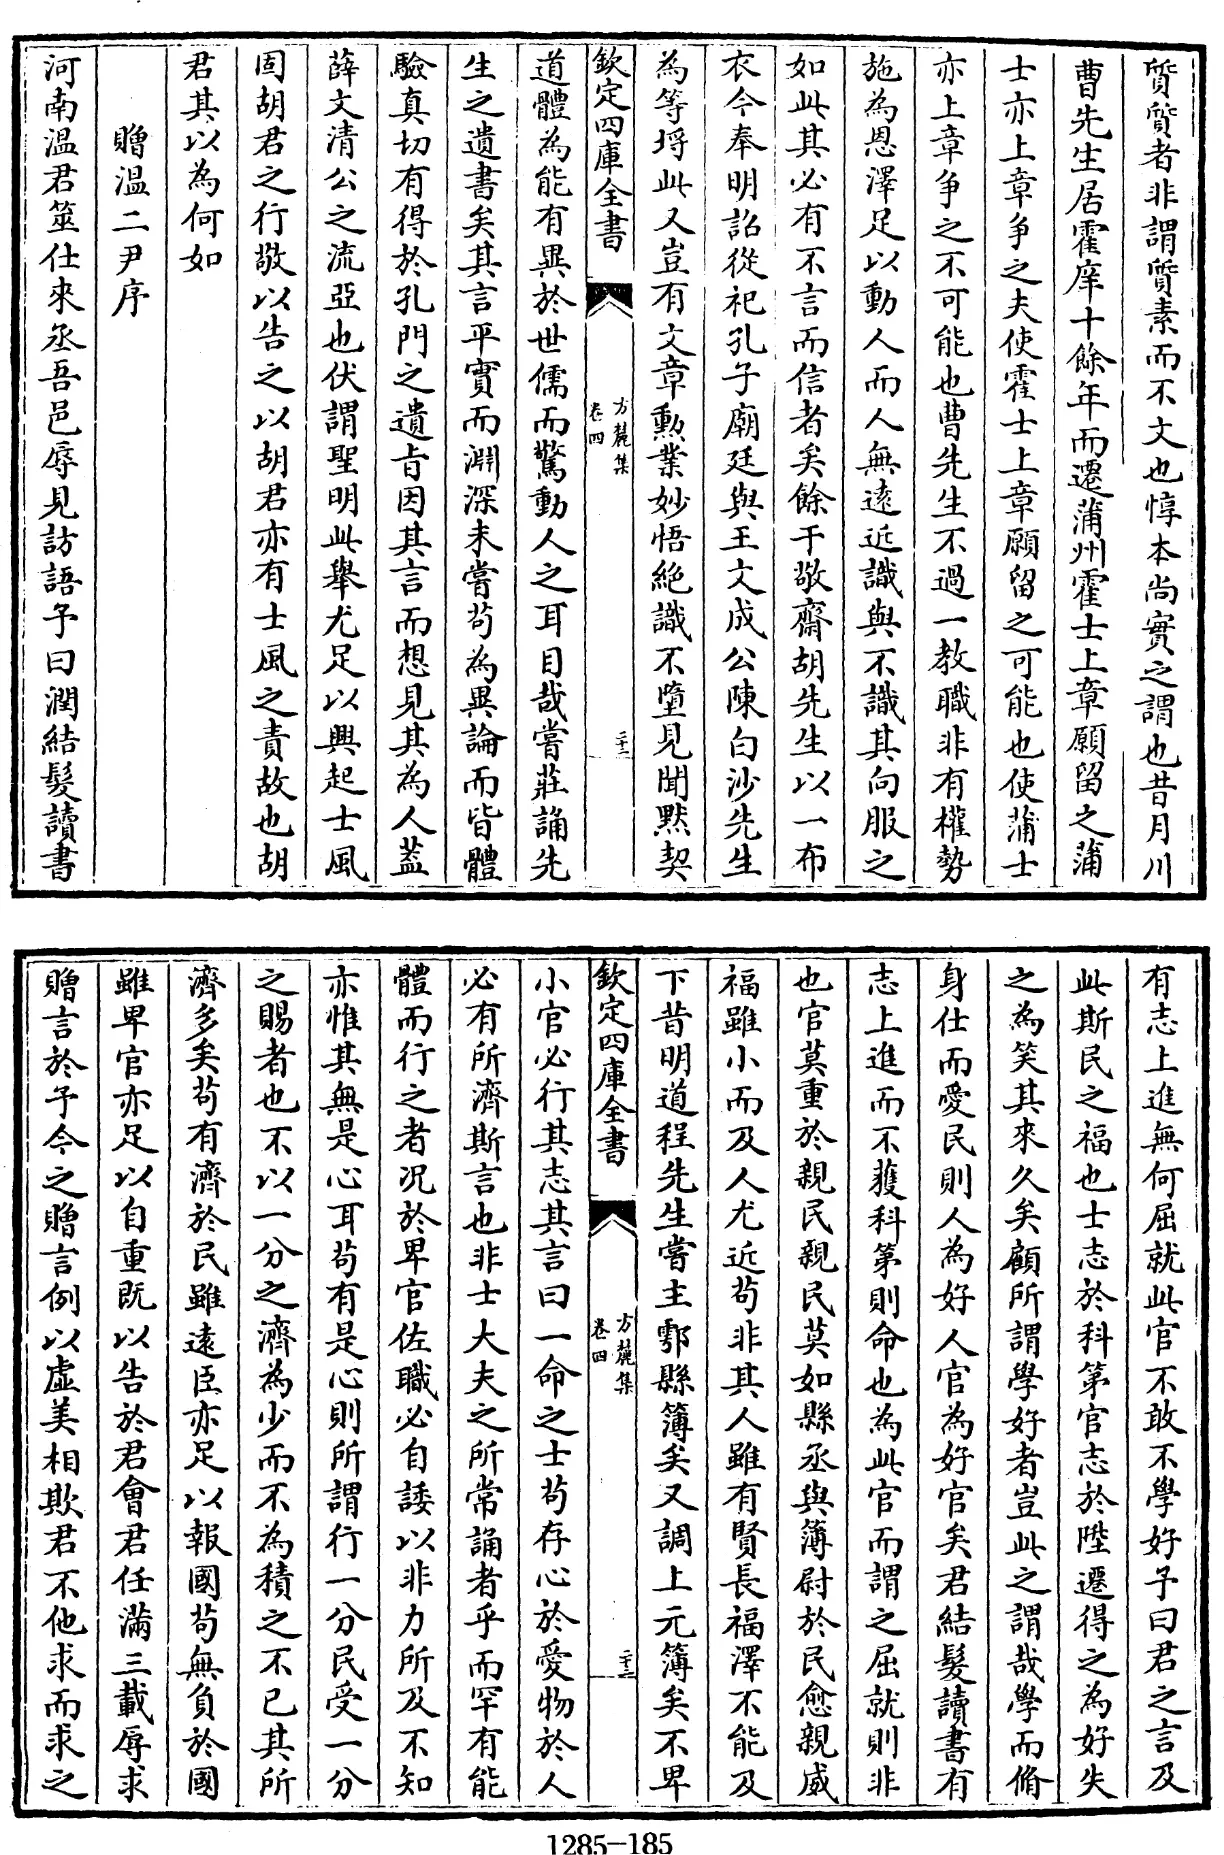 質質者非謂質素而不文也惇本尚實之謂也昔月川
曹先生居霍庠十餘年而遷蒲州霍士上章願留之蒲
士亦上章爭之夫使霍士上章願留之可能也使蒲士
亦上章爭之不可能也曹先生不過一教職非有權勢
施為恩澤足以動人而人無遠近識與不識其向服之
如此其必有不言而信者矣餘干敬齋胡先生以一布
衣今奉明詔從祀孔子廟廷與王文成公陳白沙先生
為等埒此又豈有文章勲業妙悟絶識不墮見聞黙契
欽定四庫全書
方麓集
卷四
二十二
道體為能有異於世儒而驚動人之耳目哉嘗莊誦先
生之遺書矣其言平實而淵深未嘗茍為異論而皆體
驗真切有得於孔門之遺旨因其言而想見其為人葢
薛文清公之流亞也伏謂聖明此舉尤足以興起士風
固胡君之行敬以告之以胡君亦有士風之責故也胡
君其以為何如
贈溫二尹序
河南溫君筮仕來丞吾邑辱見訪語予曰潤結髮讀書
有志上進無何屈就此官不敢不學好予曰君之言及
此斯民之福也士志於科第官志於陞遷得之為好失
之為笑其來久矣顧所謂學好者豈此之謂哉學而脩
身仕而愛民則人為好人官為好官矣君結髮讀書有
志上進而不獲科第則命也為此官而謂之屈就則非
也官莫重於親民親民莫如縣丞與簿尉於民愈親威
福雖小而及人尤近茍非其人雖有賢長福澤不能及
下昔明道程先生嘗主鄠縣簿矣又調上元簿矣不卑
欽定四庫全書
方麓集
卷四
二十三
小官必行其志其言曰一命之士茍存心於愛物於人
必有所濟斯言也非士大夫之所常誦者乎而罕有能
體而行之者况於卑官佐職必自諉以非力所及不知
亦惟其無是心耳茍有是心則所謂行一分民受一分
之賜者也不以一分之濟為少而不為積之不已其所
濟多矣茍有濟於民雖遠臣亦足以報國茍無負於國
雖卑官亦足以自重既以告於君會君任滿三載辱求
贈言於予今之贈言例以虛美相欺君不他求而求之
1285-185